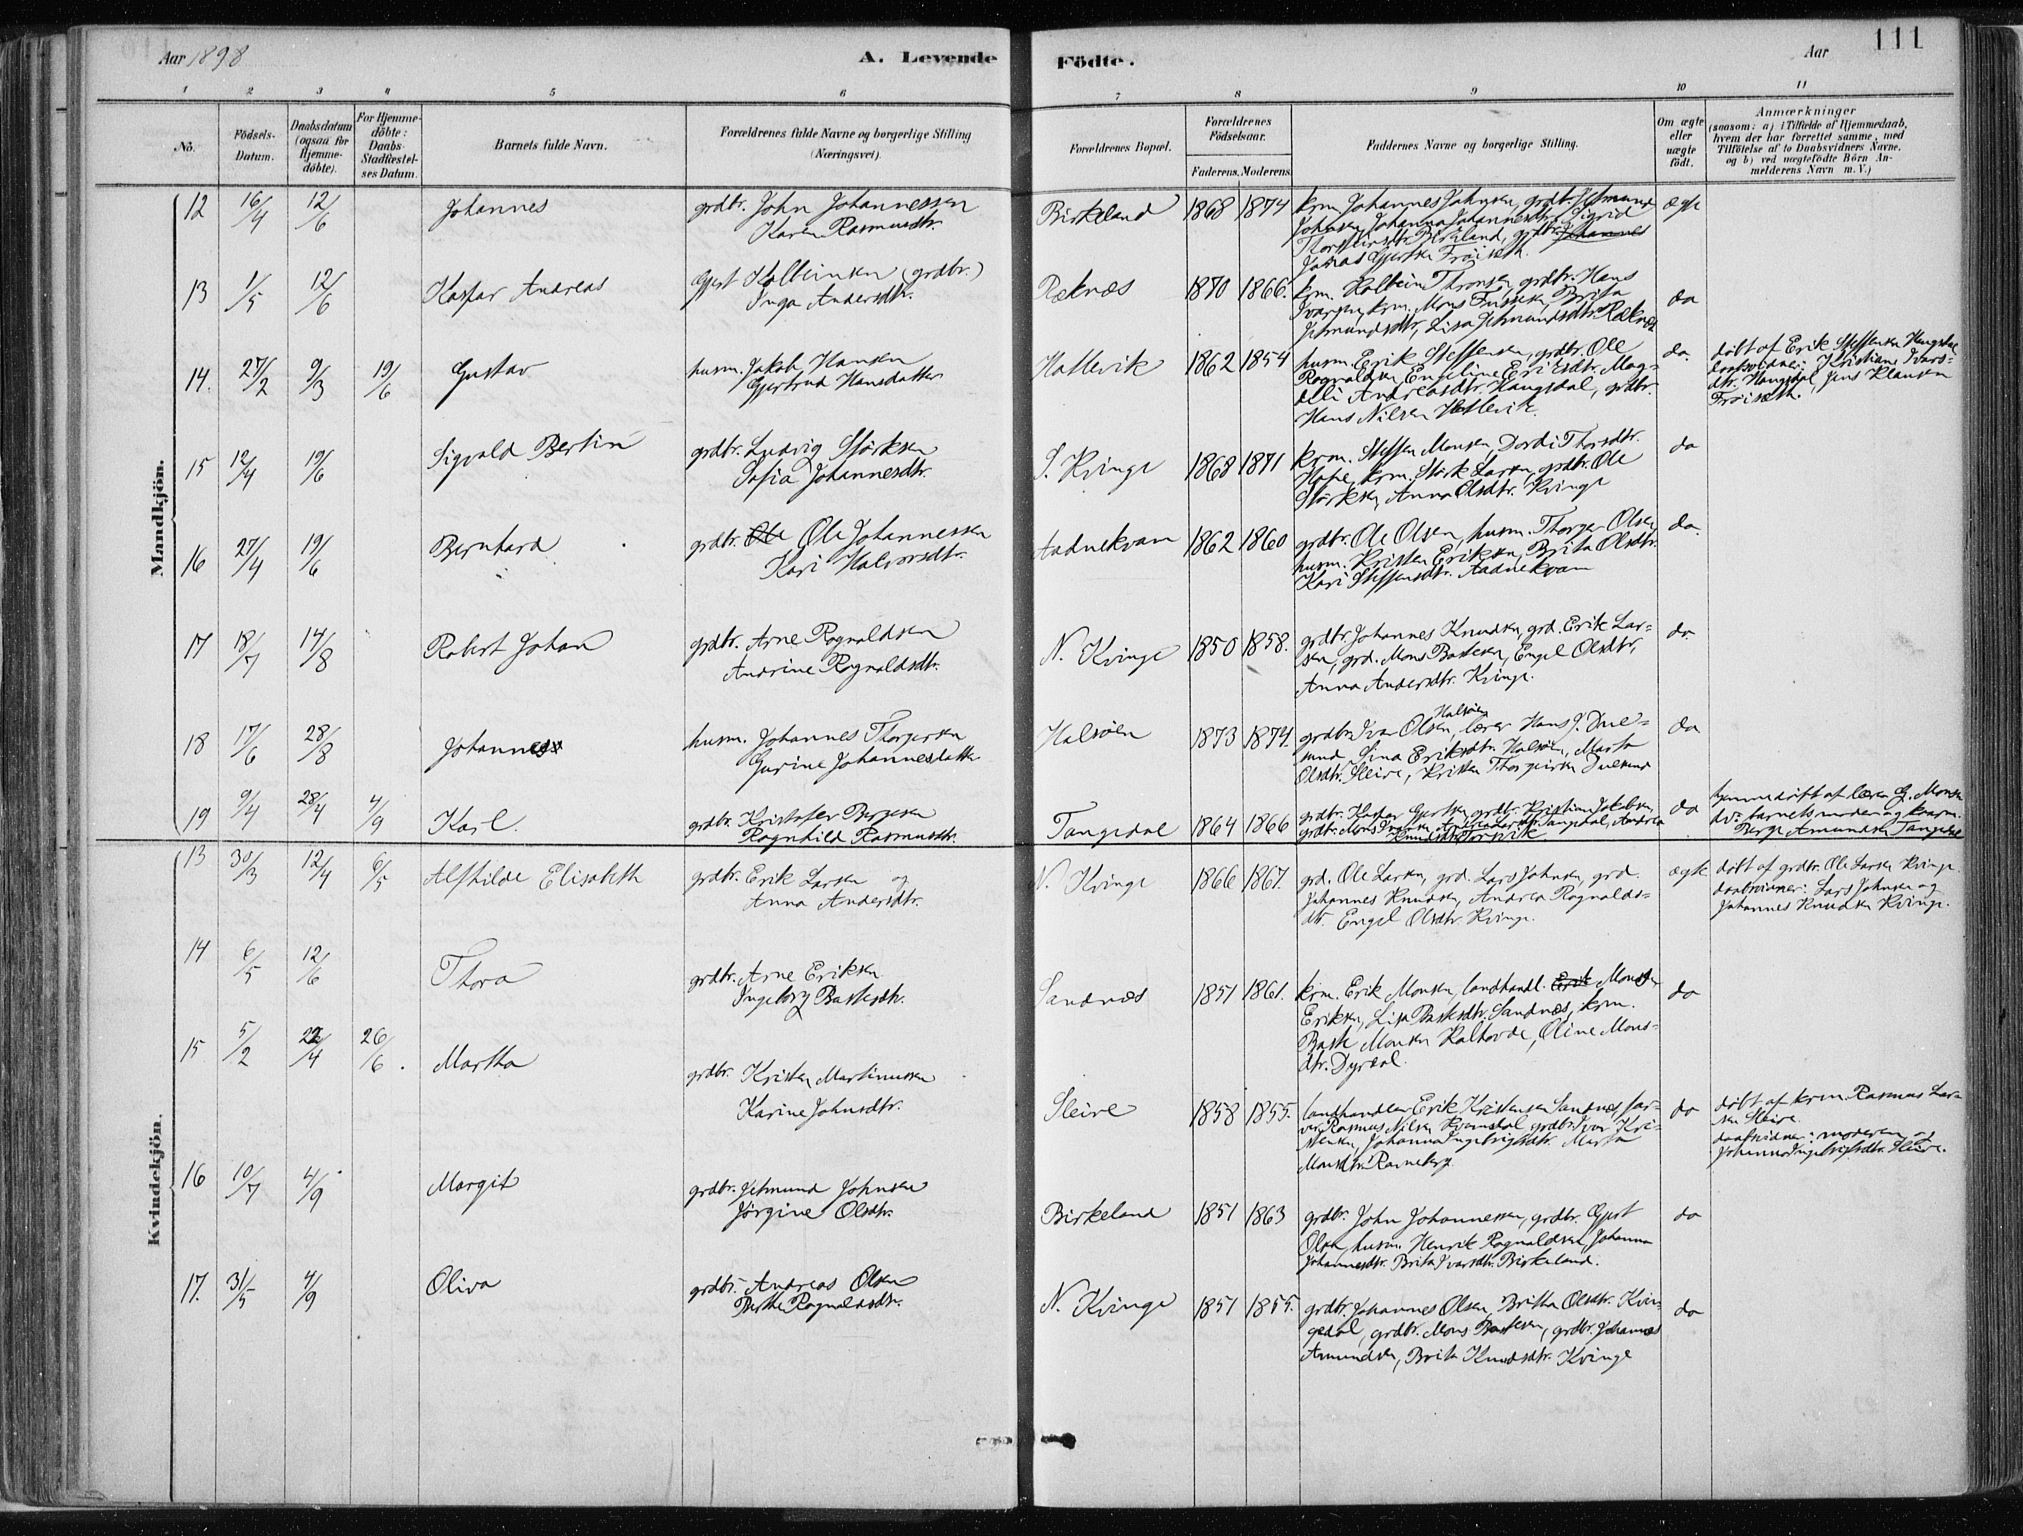 Aar 1898
A. Levende
Födte.
Aar
111
1 2 3 4 5 6 7 8 9 10 11
No.
Födsels-
Datum.
Daabsdatum
(ogsaa for
Hjemme-
döbte).
For Hjemme-
döbte:
Daabs-
Stadfæstel-
ses Datum.
Barnets fulde Navn.
Forældrenes fulde Navne og borgerlige Stilling
(Næringsvei).
Forældrenes Bopæl.
Forældrenes
Födselsaar.
Faderens. Moderens.
Faddernes Navne og borgerlige Stilling.
Om ægte
eller
uægte
födt.
Anmærkninger
(saasom: a) i Tilfælde af Hjemmedaab,
hvem der har forrettet samme, med
Tilföielse af to Daabsvidners Navne,
og b) ved uægtefödte Börn An-
melderens Navn m. V.)
Mandkjön.
12 16/4 12/6 Johannes
grdbr. John Johannessen
Karen Rasmusdtr.
Birkeland 1868 1874
krm Johannes Johnsen, grdbr. Jetmund
Johnsen, Johanna Johannesdtr. Sigrid
Thorsteinsdtr. Birkeland, grdbr. Johannes
Jonas Gjertsen Fröiseth.
ægte
13 1/5 12/6 Kaspar Andreas
Gjert Kolbeinsen (grdbr.)
Inga Andersdtr.
Ræknæs 1870 1866.
krm. Kolbein Thronsen, grdbr. Hans
Ivarsen, krm. Mons Brita
Jetmundsdtr, Lisa Jetmundsdtr. Ræknæs
do
14. 27/2 9/3 19/6 Gustav
husm. Jakob Hansen
Gjertrud Hansdatter
Hatlevik 1862 1854
husm. Erik Steffensen, grdbr. Ole
Rognaldsen Engeline Eriksdtr. Mag-
deli Andreasdtr. Haugsdal, grdbr.
Hans Nilsen Hatlevik.
do.
döbt af Erik Steffensen Haugsdal
daabsvidner: Kristiane Ivars-
dtr. Haugsdal, Jens Klausen
Fröiseth.
15 12/4 19/6 Sigvald Bertin
grdbr. Ludvig Störksen
Sofia Johannesdtr.
S. Kvinge 1868 1871
krm. Steffen Monsen, Dordi Thorsdtr.
Hope, krm. Störk Larsen, grdbr. Ole
Störksen, Anna Olsdtr. Kvinge
do
16 27/4 19/6 Bernhard
grdbr. Ole Ole Johannessen
Kari Halvorsdtr.
Aadnekvam 1862 1860
grdbr. Ole Olsen, husm. Thorger Olsen
husm. Kristen Eriksen, Brita Olsdtr.
Kari Steffensdtr. Aadnekvam
do.
17 18/7 14/8 Robert Johan
grdbr. Arne Rognaldsen
Andrine Rognaldsdtr.
N. Kvinge 1850 1858.
grdbr. Johannes Knudsen, grd. Erik Lar-
sen, grd. Mons Bastesen, Engel Olsdtr,
Anna Andersdtr. Kvinge.
do
18 17/6 28/8 Johannes
husm. Johannes Thorgersen
Gurine Johannesdatter
Halsöen 1873 1874.
Halsöen
grdbr. Ivar Olsen, lærer Hans J. Due-
sund Sina Eriksdtr. Halsöen, Marta
Olsdtr. Sleire, Kristen Thorgersen Duesund
do
19 9/4 28/4 4/9 Karl.
grdbr. Kristofer Börgesen
Rognhild Rasmusdtr.
Tangedal 1864 1866
grdbr. Kaspar Gjertsen, grdbr. Kristian Jakobsen,
grdbr. Mons Tangedal, Andrea
Knudsdtr.
do
hjemmedöbt af lærer G. Monsen
dv: barnets moder og kaarm.
Börge Amundsen Tangedal
Kvindekjön.
13 30/3 12/4 6/5 Alfhilde Elisabeth
grdbr. Erik Larsen og
Anna Andersdtr.
N. Kvinge 1866 1867.
grd. Ole Larsen, grd. Lars Johnsen, grd.
Johannes Knudsen, Andrea Rognalds-
dtr. Engel Olsdtr. Kvinge.
ægte
döbt af grdbr. Ole Larsen Kvinge
daabsvidner: Lars Johnsen og
Johannes Knudsen Kvinge.
14 6/5 12/6 Thora
grdbr. Arne Eriksen
Ingeborg Bastesdtr.
Sandnæs 1851 1861.
krm. Erik Monsen, landhandl. Erik Mons
Eriksen, Lisa Bastesdtr. Sandnæs, krm.
Baste Monsen Kaltvede, Oline Mons-
dtr. Dyrdal.
do
15 5/2 22/4 26/6. Martha
grdbr. Kristen Martinussen
Karine Johnsdtr.
Sleire 1858 1855.
landhandler Erik Kristensen Sandnæs far-
ver Rasmus Nilsen Kvamsdal grdbr. Ivar Kri-
stensen, Johanna Ingebrigtsdtr. Marta
Monsdtr. Ravneberg.
do
döbt af krm Rasmus Lar-
sen Sleire
daabsvidner: moderen og
Johanna Ingebrigtsdtr. Sleire.
16 10/7 4/9 Margit
grdbr. Jetmund Johnsen
Jörgine Olsdtr.
Birkeland 1851 1863
grdbr. John Johannessen, grdbr. Gjert
Olsen, husm. Henrik Rognaldsen, Johanna
Johannesdtr. Brita Ivarsdtr. Birkeland.
do
17. 31/5 4/9 Oliva
grdbr. Andreas Olsen
Berthe Rognaldsdtr.
N. Kvinge 1851 1855.
grdbr. Johannes Olsen, Britha Olsdtr. Kvin-
gedal, grdbr. Mons Bastesen, grdbr. Johannes
Amundsen, Brita Knudsdtr. Kvinge
do